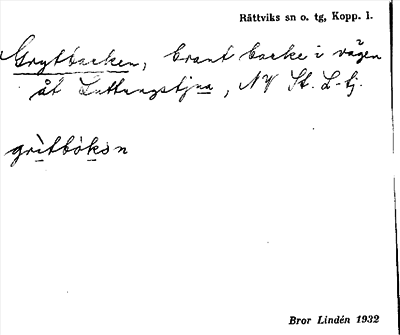 Rättviks sn o. tg, Kopp. l.
Grytbacken, brant backe i vägen
åt Luttungstjna, NV St. L-tj.
gritbòksn
Bror Lindén 1932